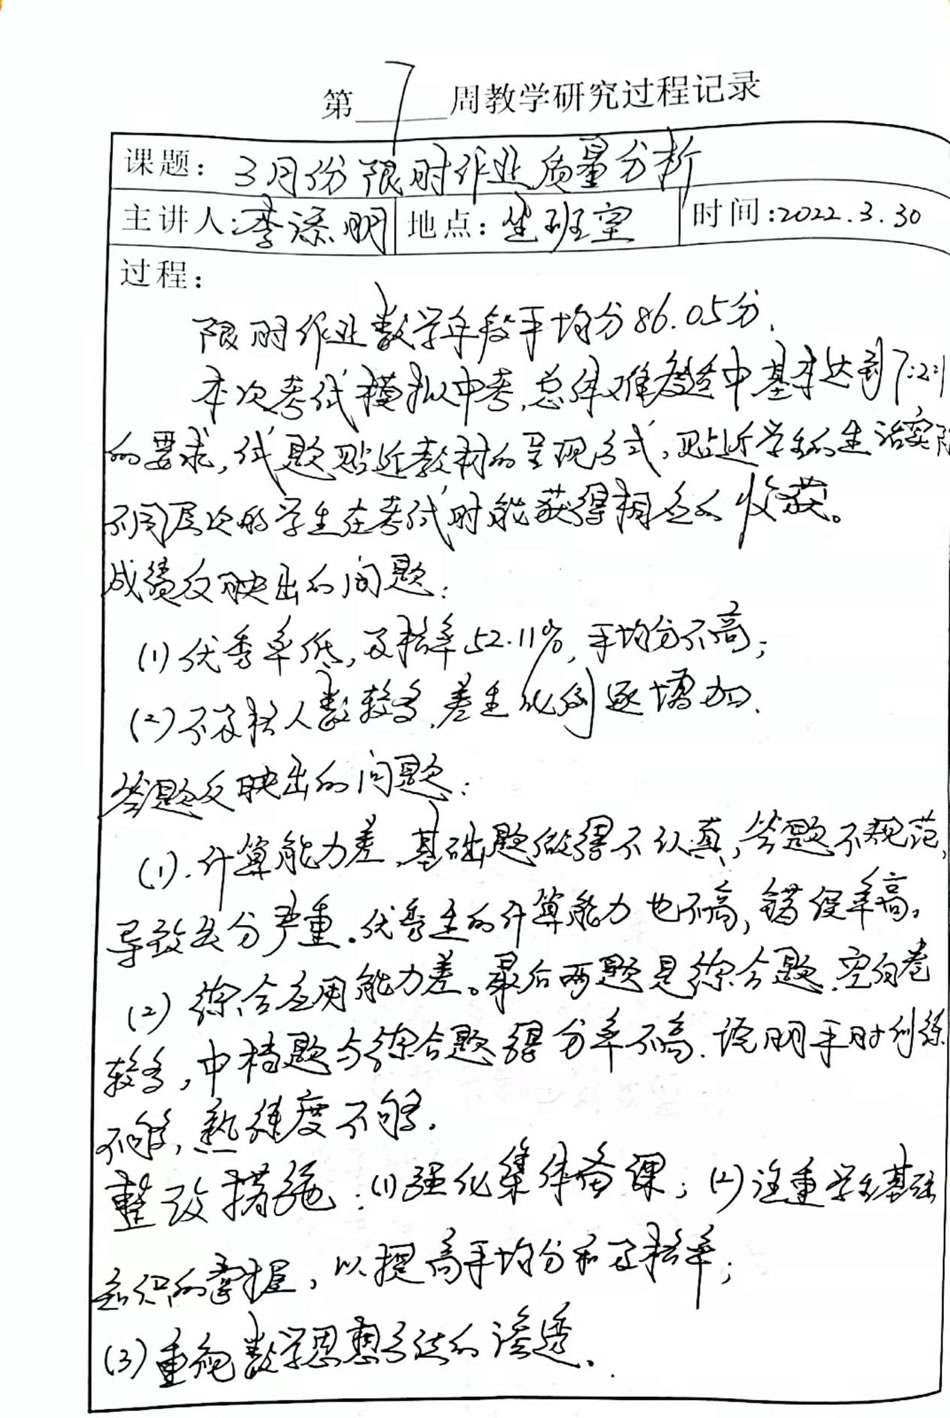 第 7 周教学研究过程记录
课题：3月份限时作业质量分析
主讲人：李添明 地点：坐班室 时间：2022.3.30
过程：
限时作业数学年段平均分86.05分.
本次考试模拟中考,总体难度适中基本达到7:2:1
的要求,试题贴近教材的呈现方式,贴近学生的生活实际
不同层次的学生在考试时能获得相应的收获。
成绩反映出的问题：
(1)优秀率低,及格率52.11%,平均分不高;
(2)不及格人数较多,差生比例逐增加.
答题反映出的问题：
(1).计算能力差,基础题做得不认真,答题不规范,
导致失分严重.优秀生的计算能力也不高,错误率高。
(2)综合应用能力差。最后两题是综合题.空白卷
较多,中档题与综合题得分率不高.说明平时训练
不够,熟练度不够.
整改措施：(1)强化集体备课；(2)注重学生基础
知识的掌握,以提高平均分和及格率;
(3)重视数学思想方法的渗透.